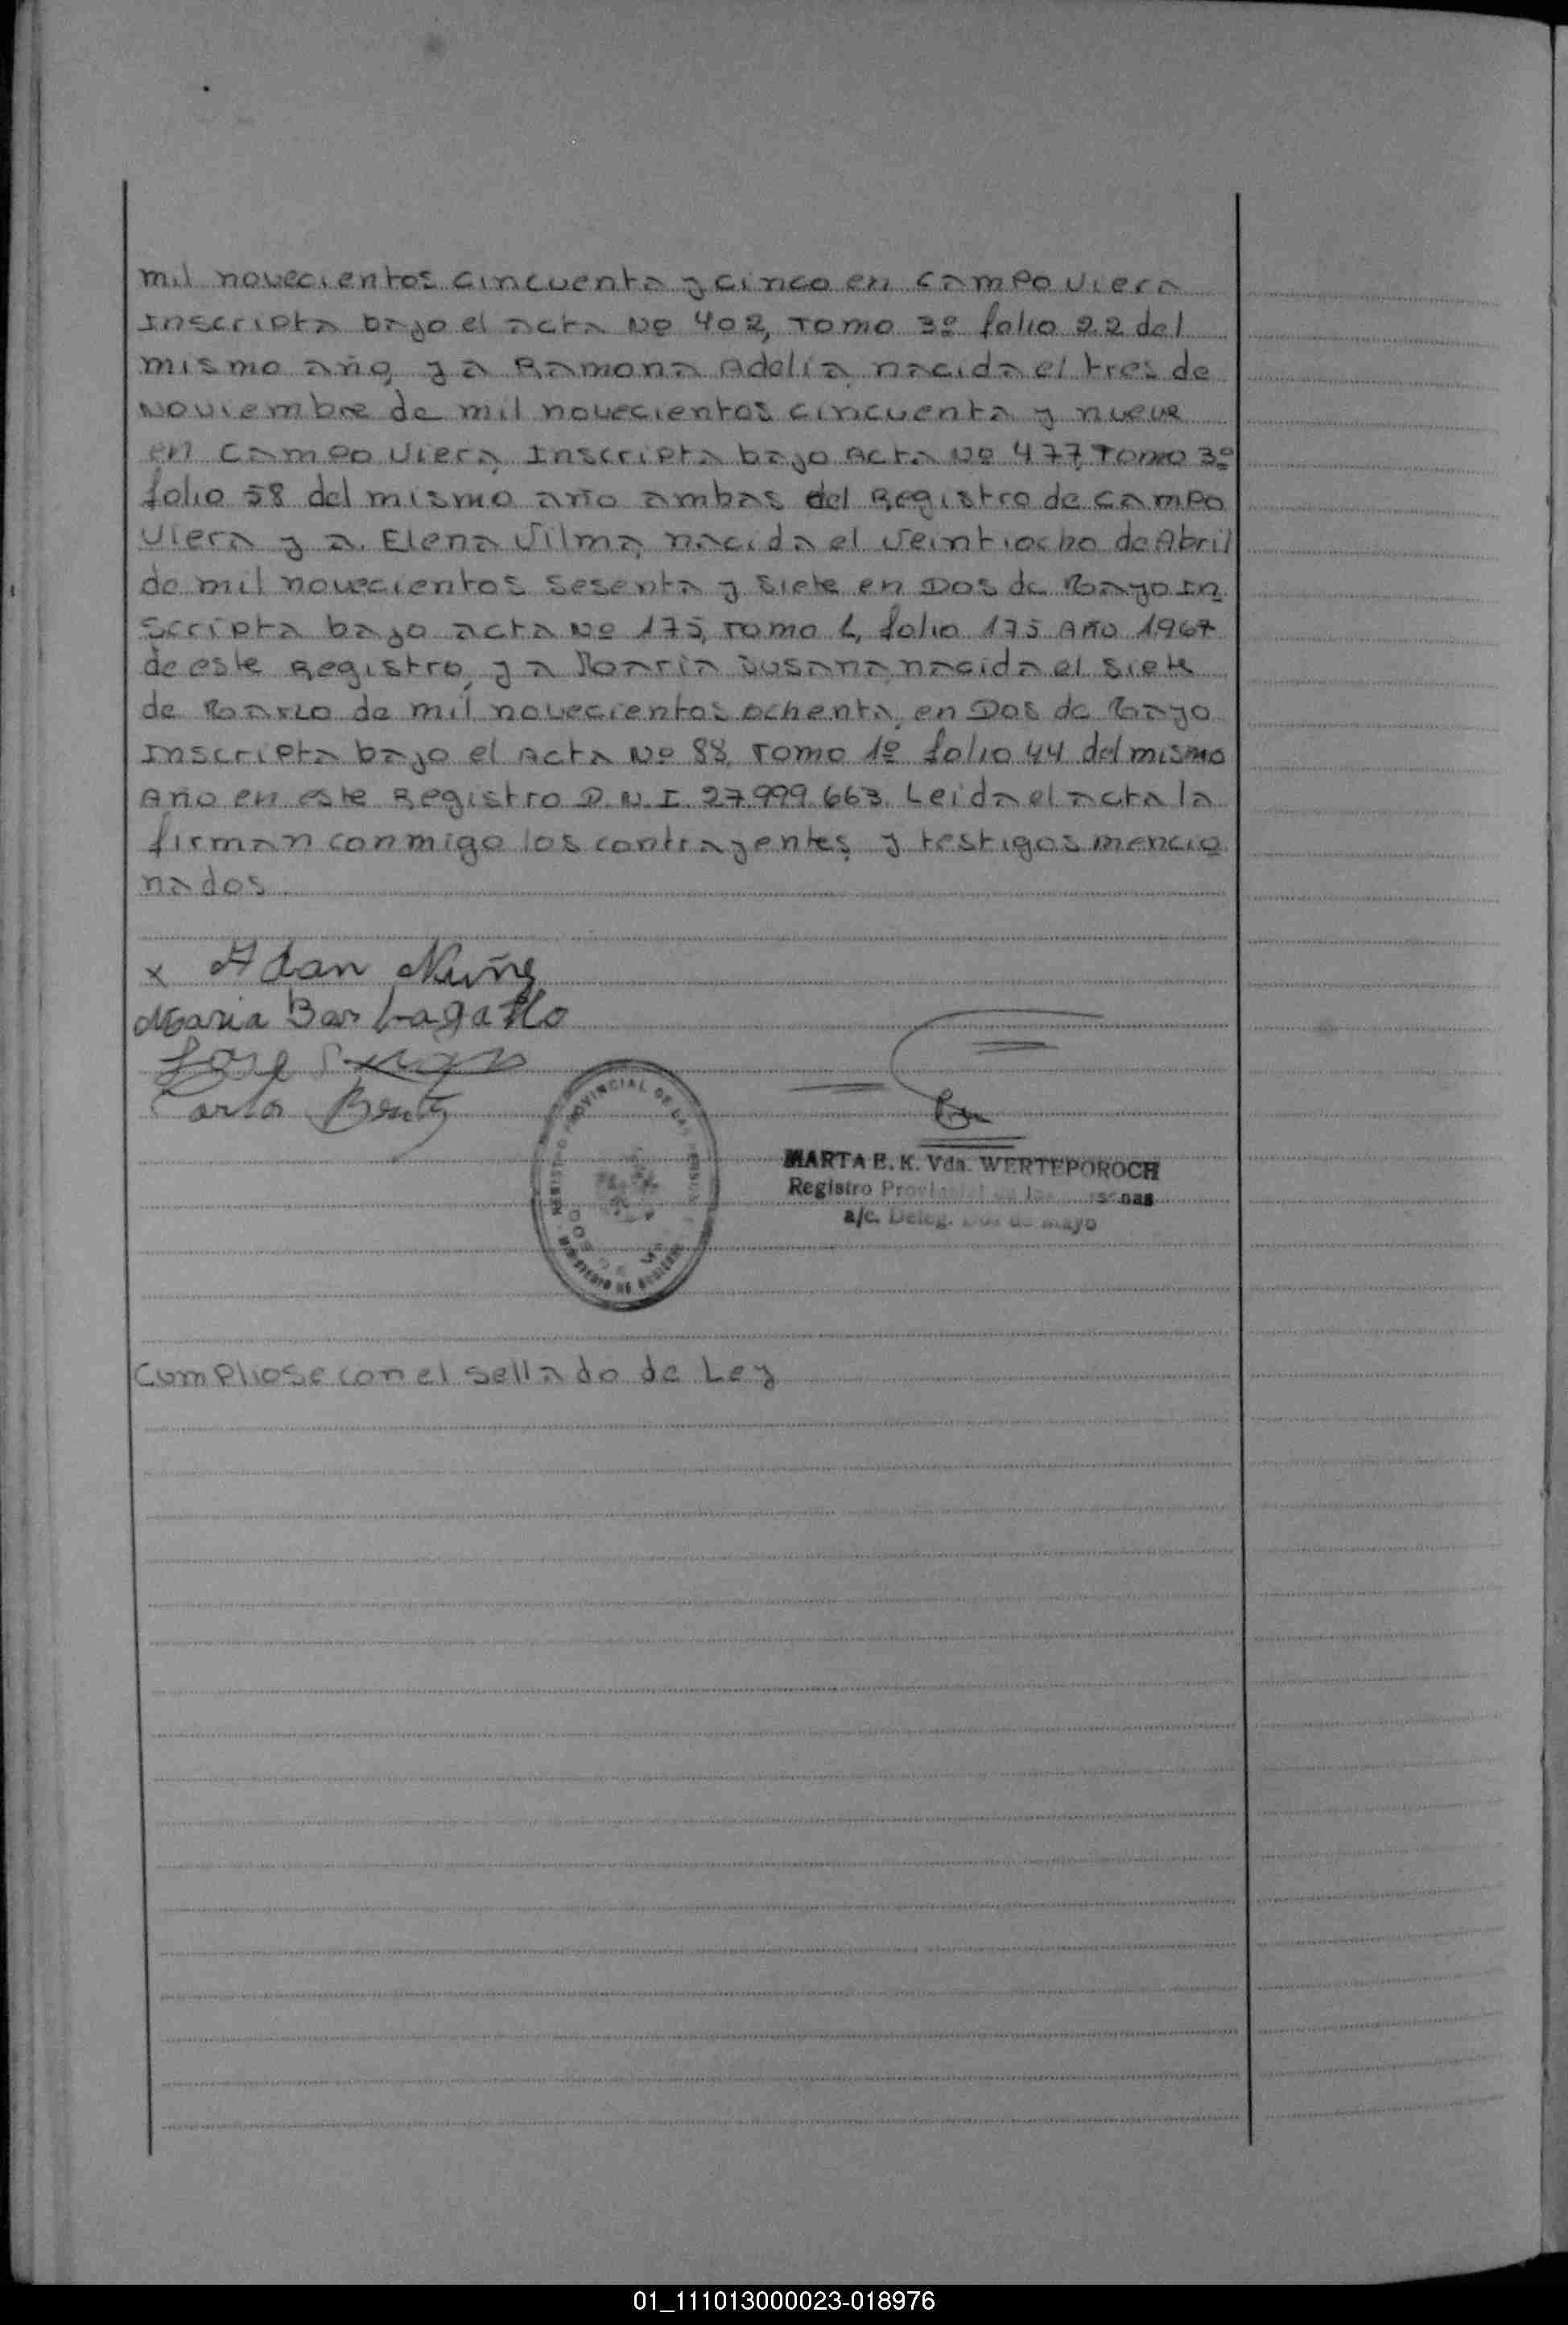 mil novecientos cincuenta y cinco en Campo Viera
Inscripta bajo el acta Nº 402, Tomo 3º folio 22 del
mismo año, y a Ramona Adelia nacida el tres de
Noviembre de mil novecientos cincuenta y nueve
en Campo Viera, Inscripta bajo Acta Nº 477, Tomo 3º
folio 58 del mismo año ambas del Registro de Campo
Viera y a Elena Vilma, nacida el Veintiocho de Abril
de mil novecientos sesenta y siete en Dos de Mayo In
scripta bajo acta Nº 175, Tomo 1, folio 175 Año 1967
de este Registro, y a Maria Susana, nacida el siete
de Marzo de mil novecientos ochenta, en Dos de Mayo
Inscripta bajo el Acta Nº 88, Tomo 1º folio 44 del mismo
Año en este Registro D.N.I. 27.999.663. Leida el acta la
firman conmigo los contrayentes y testigos mencio
nados
x Adan Nuñez
Maria Barbagallo
Jose
Carlos
REGISTRO PROVINCIAL DE LAS
MINISTERIO DE GOBIERNO
MARTA E. K. Vda. WERTEPOROCH
Registro Provincial de las Personas
a/c. Deleg. Dos de Mayo
Cumpliose con el sellado de Ley
01_111013000023-018976